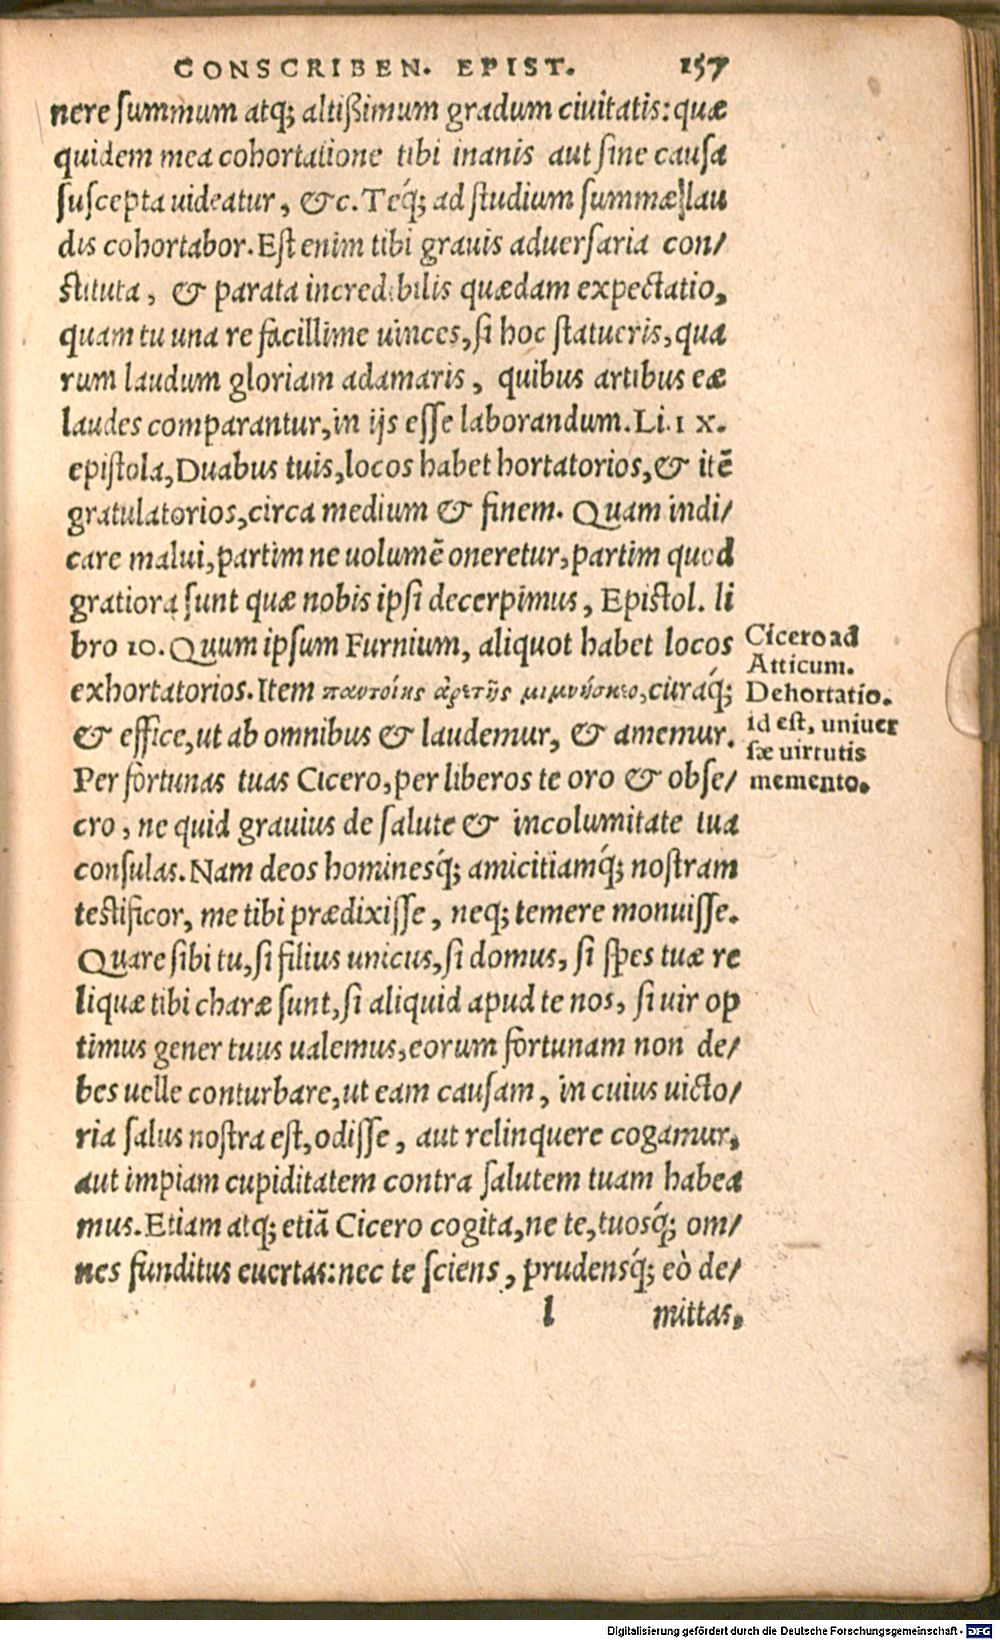 CONSCRIBEN. EPIST. 157
nere ſummum atq; altißimum gradum ciuitatis: quæ
quidem mea cohortatione tibi inanis aut ſine cauſa
ſuſcepta uideatur, &c. Teq́; ad ſtudium ſummæ lau
dis cohortabor. Eſt enim tibi grauis aduerſaria con/
ſtituta, & parata incredibilis quædam expectatio,
quam tu una re facillime uinces, ſi hoc ſtatueris, qua
rum laudum gloriam adamaris, quibus artibus eæ
laudes comparantur, in ijs eſſe laborandum. Li. IX.
epiſtola, Duabus tuis, locos habet hortatorios, & itē
gratulatorios, circa medium & finem. Quam indi/
care malui, partim ne uolumē oneretur, partim quod
gratiora ſunt quæ nobis ipſi decerpimus, Epiſtol. li
bro 10. Quum ipſum Furnium, aliquot habet locos
exhortatorios. Item παντοίης ἀρετῆς μιμνήσκεο, curaq́;
& effice, ut ab omnibus & laudemur, & amemur.
Per fortunas tuas Cicero, per liberos te oro & obſe/
cro, ne quid grauius de ſalute & incolumitate tua
conſulas. Nam deos hominesq́; amicitiamq́; noſtram
teſtificor, me tibi prædixiſſe, neq; temere monuiſſe.
Quare ſibi tu, ſi filius unicus, ſi domus, ſi ſpes tuæ re
liquæ tibi charæ ſunt, ſi aliquid apud te nos, ſi uir op
timus gener tuus ualemus, eorum fortunam non de/
bes uelle conturbare, ut eam cauſam, in cuius uicto/
ria ſalus noſtra eſt, odiſſe, aut relinquere cogamur,
aut impiam cupiditatem contra ſalutem tuam habea
mus. Etiam atq; etiā Cicero cogita, ne te, tuosq́; om/
nes funditus euertas: nec te ſciens, prudensq́; eò de/
l mittas.
Cicero ad
Atticum.
Dehortatio.
id eſt, uniuer
ſæ uirtutis
memento.
Digitalisierung gefördert durch die Deutsche Forschungsgemeinschaft - DFG